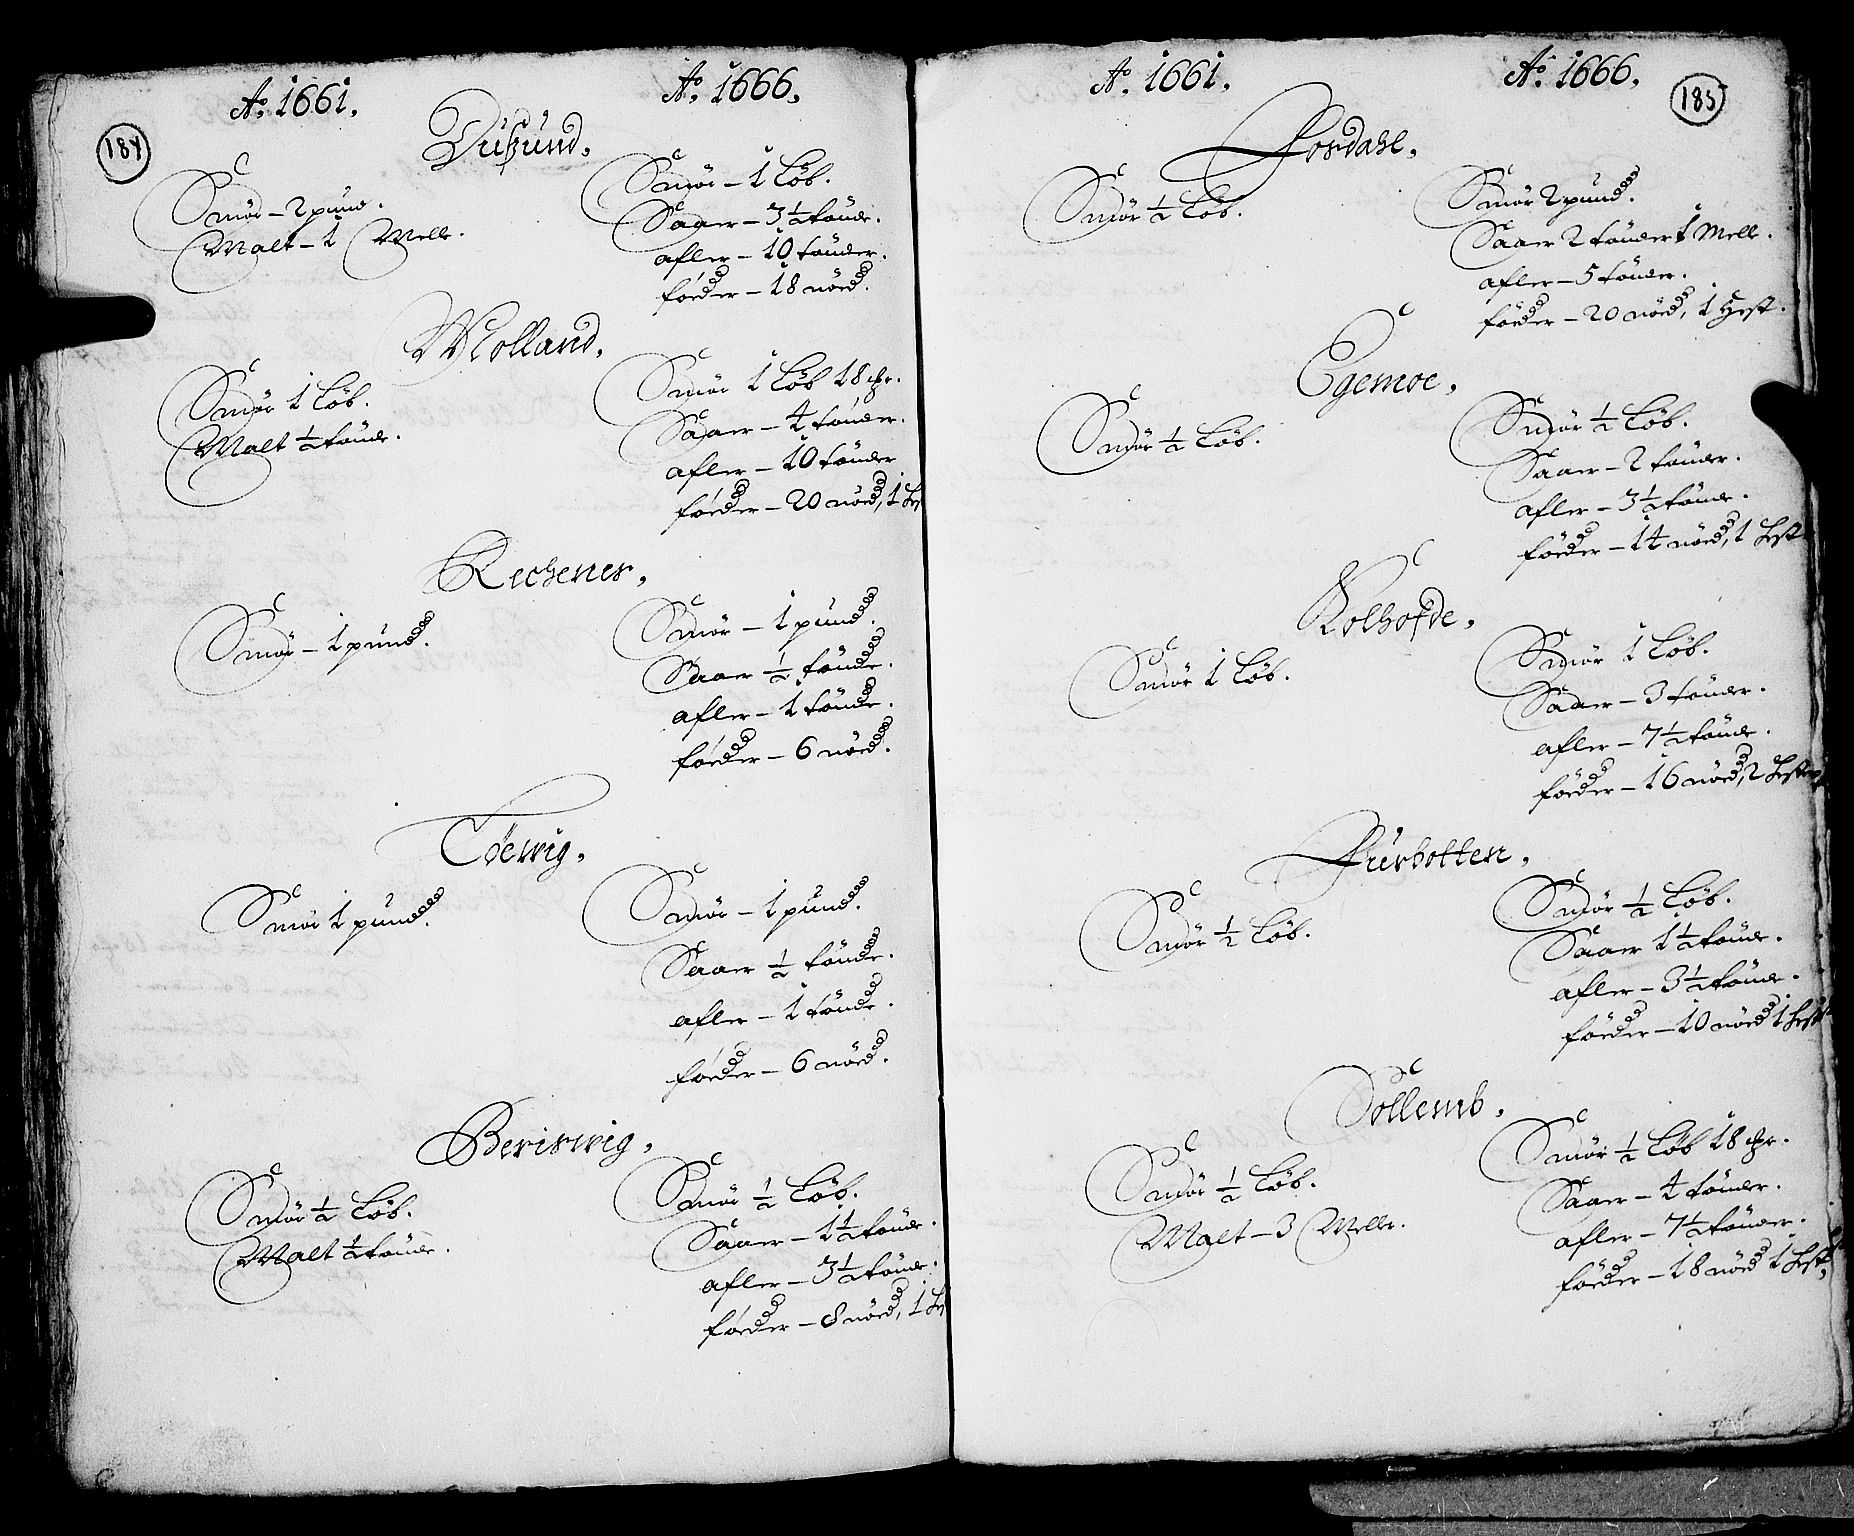 184
Ao. 1661.
Ao. 1666.
Dusund,
Smör – 2 pund.
Malt – 1 Melle.
Smör – 1 Löb.
Saaer – 3 ½ tönde.
afler – 10 tönder.
föeder – 18 nöed.
Molland,
Smör 1 Löb.
Malt ½ tönde.
Smör 1 Löb 18 chr.
Saaer – 4 tönder.
afler – 10 tönder
föeder – 20 nöed, 1
Rechener,
Smör – 1 pund.
Smör – 1 pund.
Saaer ½ tönde.
afler – 1 tönde.
föeder – 6 nöed.
Töevig,
Smör 1 pund.
Smör – 1 pund.
Saaer ½ tönde.
afler – 1 tönde.
föeder – 6 nöed.
Beriswig,
Smör ½ Löb.
Malt ½ tönde.
Smör ½ Löb.
Saaer – 1 ½ tönde.
afler – 3 ½ tönde.
föeder – 8 nöed, 1
185
Ao. 1661.
Ao. 1666.
Jordahl,
Smör ½ Löb.
Smör 2 pund.
Saaer 2 tönder 1 Melle.
afler – 5 tönder.
föeder – 20 nöed, 1 Hest.
Egemoe,
Smör ½ Löb.
Smör ½ Löb.
Saaer – 2 tönder.
afler – 3 ½ tönde.
föeder – 14 nöed, 1 Hest
Kolhofde,
Smör 1 Löb.
Smör 1 Löb.
Saaer – 3 tönder.
afler – 7 ½ tönde.
föeder – 16 nöed, 2 Hester
Furholten,
Smör ½ Löb.
Smör ½ Löb.
Saaer 1 ½ tönde.
afler – 3 ½ tönde.
föeder – 10 nöed 1 Hest
Sollemb,
Smör ½ Löb.
Malt – 3 Melle.
Smör ½ Löb 18 chr.
Saaer – 4 tönder.
afler – 7 ½ tönder.
föeder – 18 nöed 1 Hest,